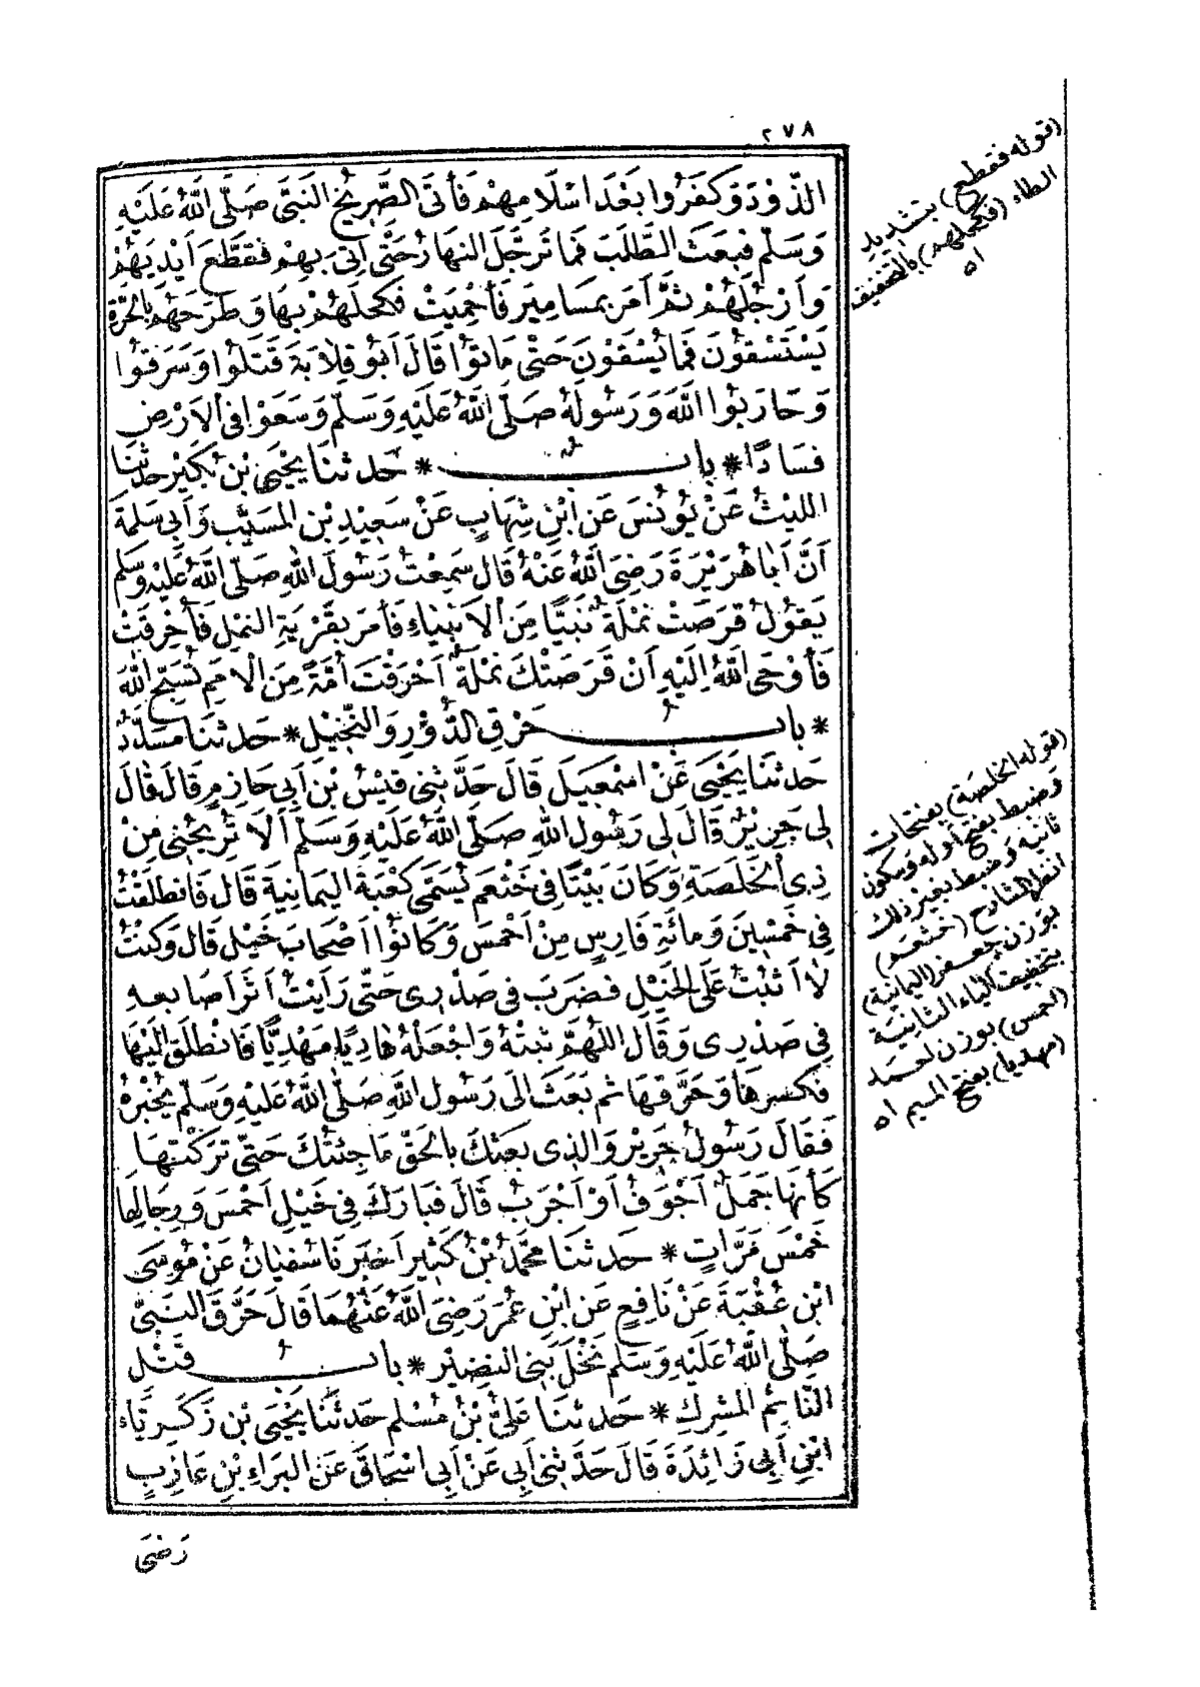 ٢٧٨
الذَّوْدَ وَكَفَرُوا بَعْدَ اسْلَامِهِمْ فَأَتَى الصَّرِيخُ النَّبِيَّ صَلَّى اللَّهُ عَلَيْهِ
وَسَلَّم فَبَعَثَ الطَّلَبَ فَمَا تَرَجَّلَ النهَارُ حَتَّى اُتِىَ بِهِمْ فَقَطَّعَ أَيْدِيَهُمْ
وَأَرْجُلَهُمْ ثُمَّ أَمَرَ بِمَسَامِيرَ فَأُحْمِيَتْ فَكَحَلَهُمْ بِهَا وَطَرَحَهُمْ بِالْحَرَّةِ
يَسْتَسْقُونَ فَمَا يُسْقَوْنَ حَتَّى مَاتُوا قَالَ اَبُو قِلَابَةَ قَتَلُوا وَسَرَقُوا
وَحَارَبُوا اللَّهَ وَرَسُولَهُ صَلَّى اللَّهُ عَلَيْهِ وَسَلَّم وَسَعَوْا فِى الْاَرْضِ
فَسَادًا * بابٌ * حَدثنَا يَحْيَى بْن بُكَيْر حدثنَا
الليْثُ عَنْ يُونُسَ عَنِ ابْنِ شِهَابٍ عَنْ سَعِيدِ بْنِ المُسَيَّبِ وَأَبِى سَلَمَةَ
أَنَّ أَبَا هُرَيْرَةَ رَضِىَ اللَّهُ عَنْهُ قَالَ سَمِعْتُ رَسُولَ اللَّهِ صَلَّى اللَّهُ عَلَيْهِ وَسَلَّم
يَقُولُ قَرَصَتْ نَمْلَةٌ نَبِيًّا مِنَ الْاَنْبِيَاءِ فَأَمَرَ بِقَرْيَةِ النمْلِ فَأُحْرِقَتْ
فَأَوْحَى اللَّهُ اِلَيْهِ اَنْ قَرَصَتْكَ نَمْلَةٌ اَحْرَقْتَ أُمَّةً مِنَ الْاُمَمِ تُسَبِّحُ اللَّهَ
* بابُ حَرْقِ الدُّورِ وَالنَّخِيلِ * حَدثنَا مُسَدَّدٌ
حَدثنَا يَحْيَى عَنْ اسْمعِيلَ قَالَ حَدَّثنِى قَيْسُ بْنُ اَبِى حَازِمٍ قَالَ قَالَ
لِى جَرِيرٌ قَالَ لِى رَسُولُ اللَّهِ صَلَّى اللَّهُ عَلَيْهِ وَسَلَّم أَلَا تُرِيحُنِى مِنْ
ذِى الْخَلَصَةِ وَكَانَ بَيْتًا فِى خَثْعَمَ يُسَمَّى كَعْبَةَ الْيَمَانِيَةَ قَالَ فَانْطَلَقْتُ
فِى خَمْسِينَ وَمِائَةِ فَارِسٍ مِنْ اَحْمَسَ وَكَانُوا اَصْحَابَ خَيْلٍ قَالَ وَكُنْتُ
لَا اَثْبُتُ عَلَى الْخَيْلِ فَضَرَبَ فِى صَدْرِى حَتَّى رَاَيْتُ اَثَرَ اَصَابِعِهِ
فِى صَدْرِى وَقَالَ اللهُمَّ ثَبِّتْهُ وَاجْعَلْهُ هَادِيًا مَهْدِيًّا فَانْطَلَقَ اِلَيْهَا
فَكَسَرَهَا وَحَرَّقَهَا ثم بَعَثَ اِلَى رَسُولِ اللَّهِ صَلَّى اللَّهُ عَلَيْهِ وَسَلَّم يُخْبِرُهُ
فَقَالَ رَسُولُ جَرِيرٍ وَالذِى بَعَثَكَ بِالْحَقِّ مَا جِئْتُكَ حَتَّى تَرَكْتُهَا
كَأَنهَا جَمَلٌ اَجْوَفُ اَوْ اَجْرَبُ قَالَ فَبَارَكَ فِى خَيْلِ اَحْمَسَ وَرِجَالِهَا
خَمْسَ مَرَّاتٍ * حَدثنَا مُحَمَّدُ بْنُ كَثِيرٍ اَخْبَرَنَا سُفْيَانُ عَنْ مُوسَى
ابْنِ عُقْبَةَ عَنْ نَافِعٍ عَنِ ابْنِ عُمَرَ رَضِىَ اللَّهُ عَنْهُمَا قَالَ حَرَّقَ النَّبِىُّ
صَلَّى اللَّهُ عَلَيْهِ وَسَلَّم نَخْلَ بَنِى النضِيرِ * بابُ قَتْلِ
النَّائِمِ الْمُشْرِكِ * حَدثنَا عَلِىُّ بْنُ مُسْلِم حَدثنَا يَحْيَى بْن زَكَرِيَّاء
ابْنِ أَبِى زَائِدَةَ قَالَ حَدَّثنِى أَبِى عَنْ أَبِى اسْحَاقَ عَنِ الْبَرَاءِ بْنِ عَازِبٍ
رَضِىَ
(قوله فقطع) بتشديد
الطاء (فكحلهم) بالتخفيف
اه
(قوله الخلصة) بفتحات
وضبط بفتح أوله وسكون
ثانيه وضبط بغير ذلك
انظر الشارح (خثعم)
بوزن جعفر (اليمانية)
بتخفيف الياء الثانية
(أحمس) بوزن أحمد
(مهديا) بفتح الميم اه